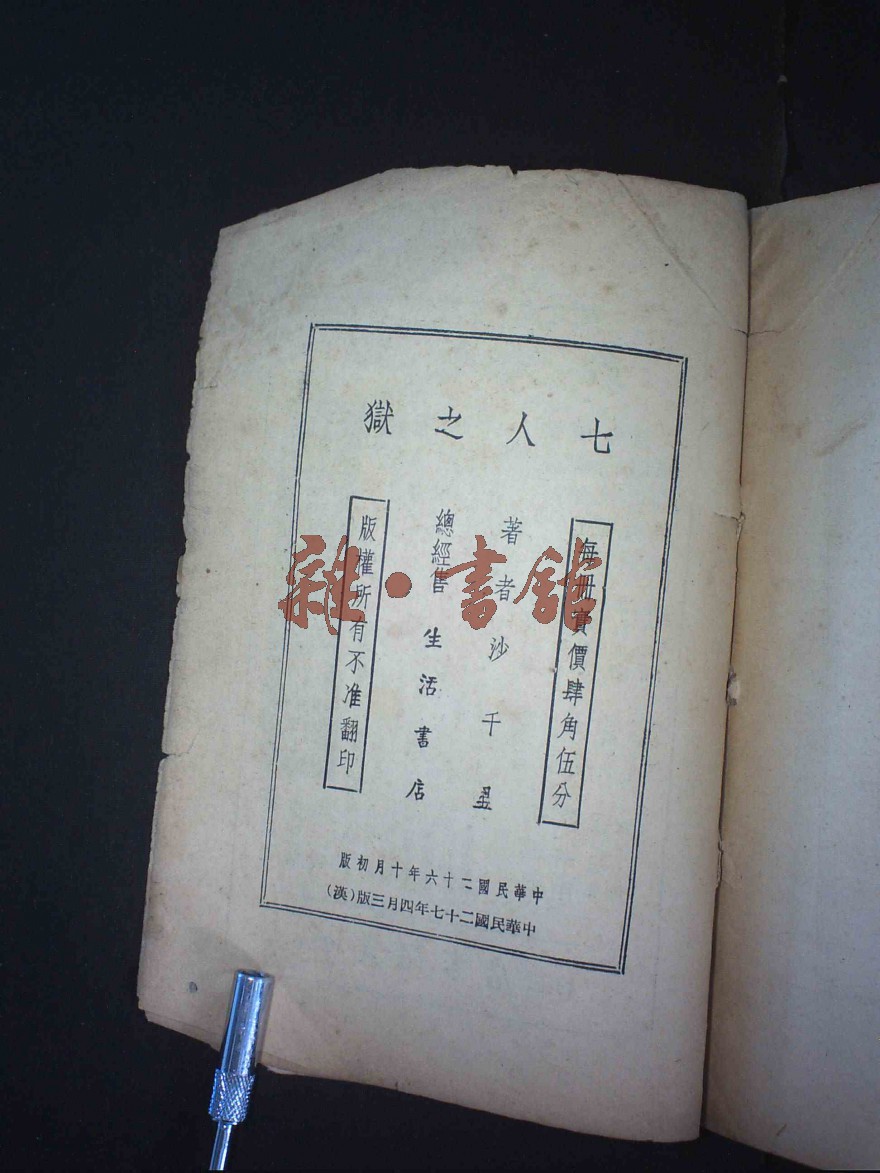 七人之獄
每冊實價肆角伍分
著者 沙千里
總經售 生活書店
版權所有不准翻印
中華民國二十六年十月初版
中華民國二十七年四月三版(漢)
雜·書館